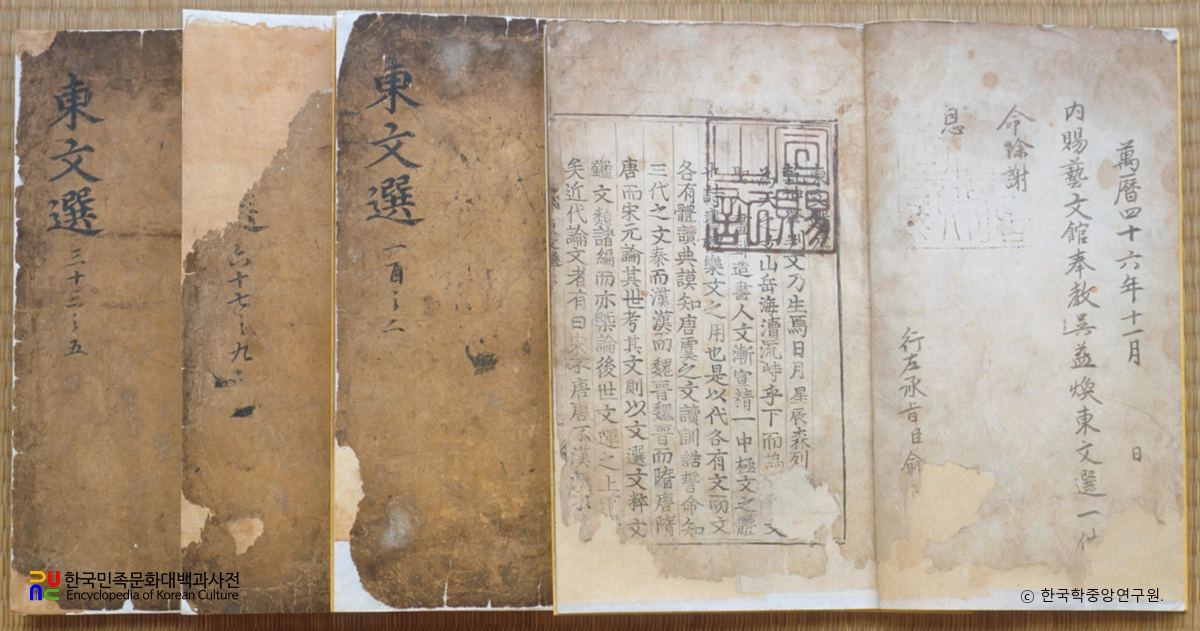 東文選
三十三之五
六十七之九
東文選
一百之二
萬曆四十六年十一月 日
內賜藝文館奉教吳益煥東文選一件
命除謝
恩
行左承旨臣俞
宣賜之記
文乃生焉日月星辰森列
山岳海瀆流峙乎下而為
造書人文漸宣精一中極文之體
詩 樂文之用也是以代各有文而文
各有體讀典謨知唐虞之文讀訓誥誓命知
三代之文秦而漢漢而魏晉魏晉而隋唐隋
唐而宋元論其世考其文則以文選文粹文
鑑文類諸編而亦槩論後世文運之上
矣近代論文者有曰宋不唐唐不漢
한국민족문화대백과사전
Encyclopedia of Korean Culture
ⓒ 한국학중앙연구원.